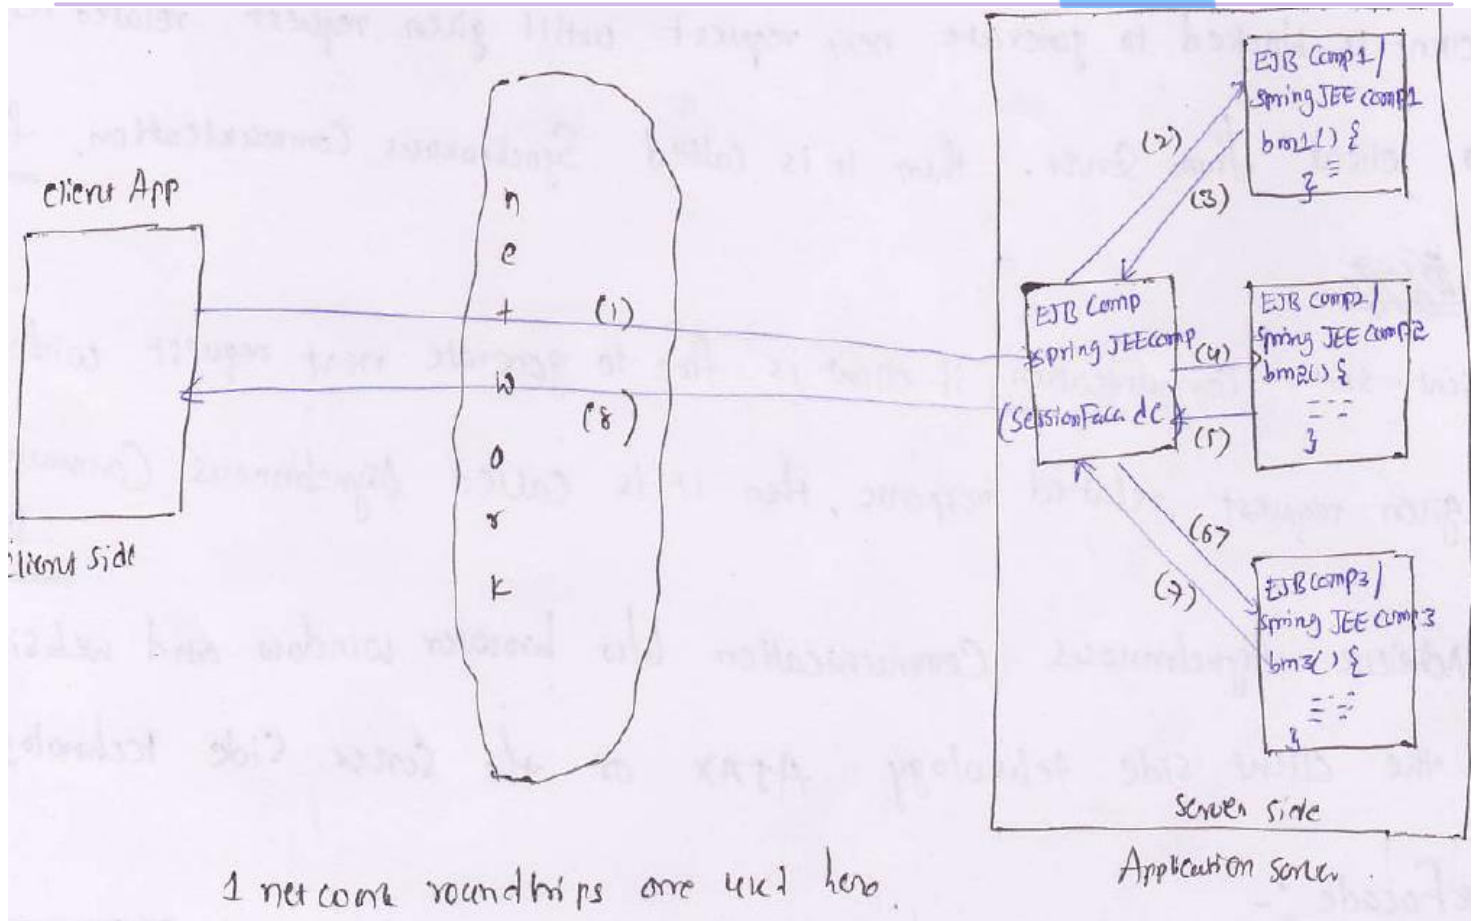 Client App
Client Side
n
e
t
w
o
r
k
(1)
(8)
(2)
(3)
(4)
(5)
(6)
(7)
EJB Comp
spring JEEcomp
(SessionFacade
EJB Comp1/
spring JEE comp1
bm1() {
}
EJB Comp2/
spring JEE comp2
bm2() {
}
EJB Comp3/
spring JEE comp3
bm3() {
}
Server Side
Application Server
1 network roundtrips are used here.